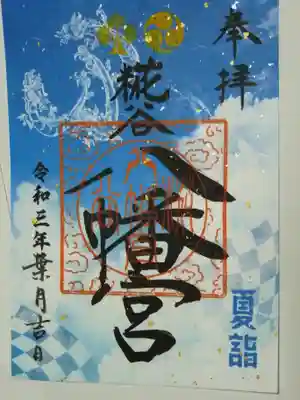 奉拝
糀谷八幡宮
夏詣
令和三年葉月吉日